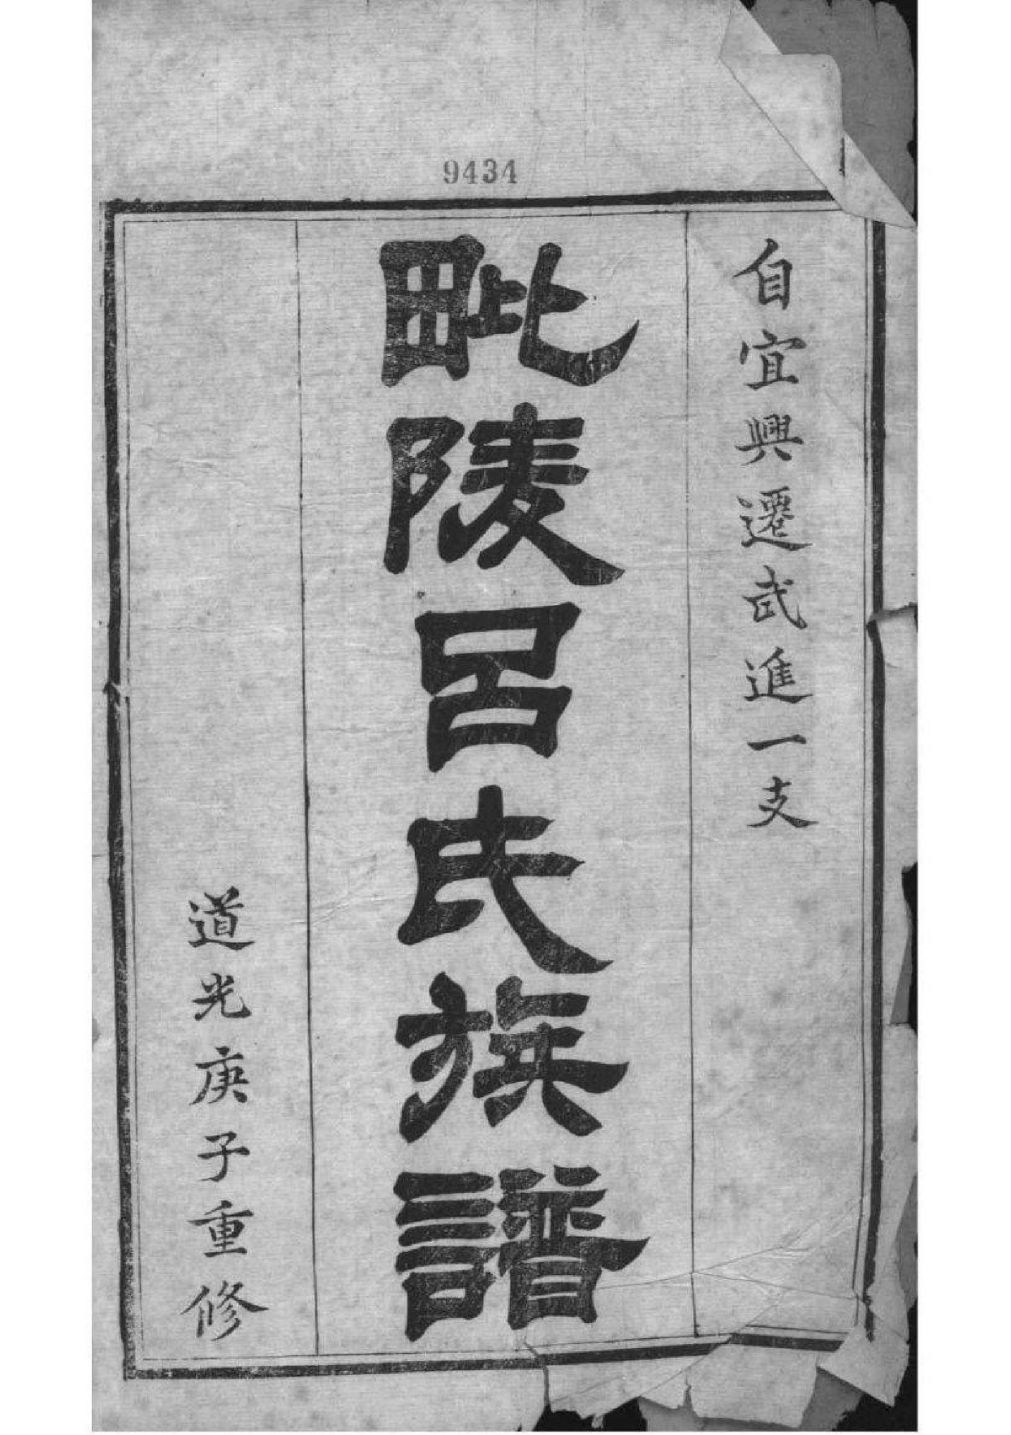 9434
自宜興遷武進一支
毗陵呂氏族譜
道光庚子重修